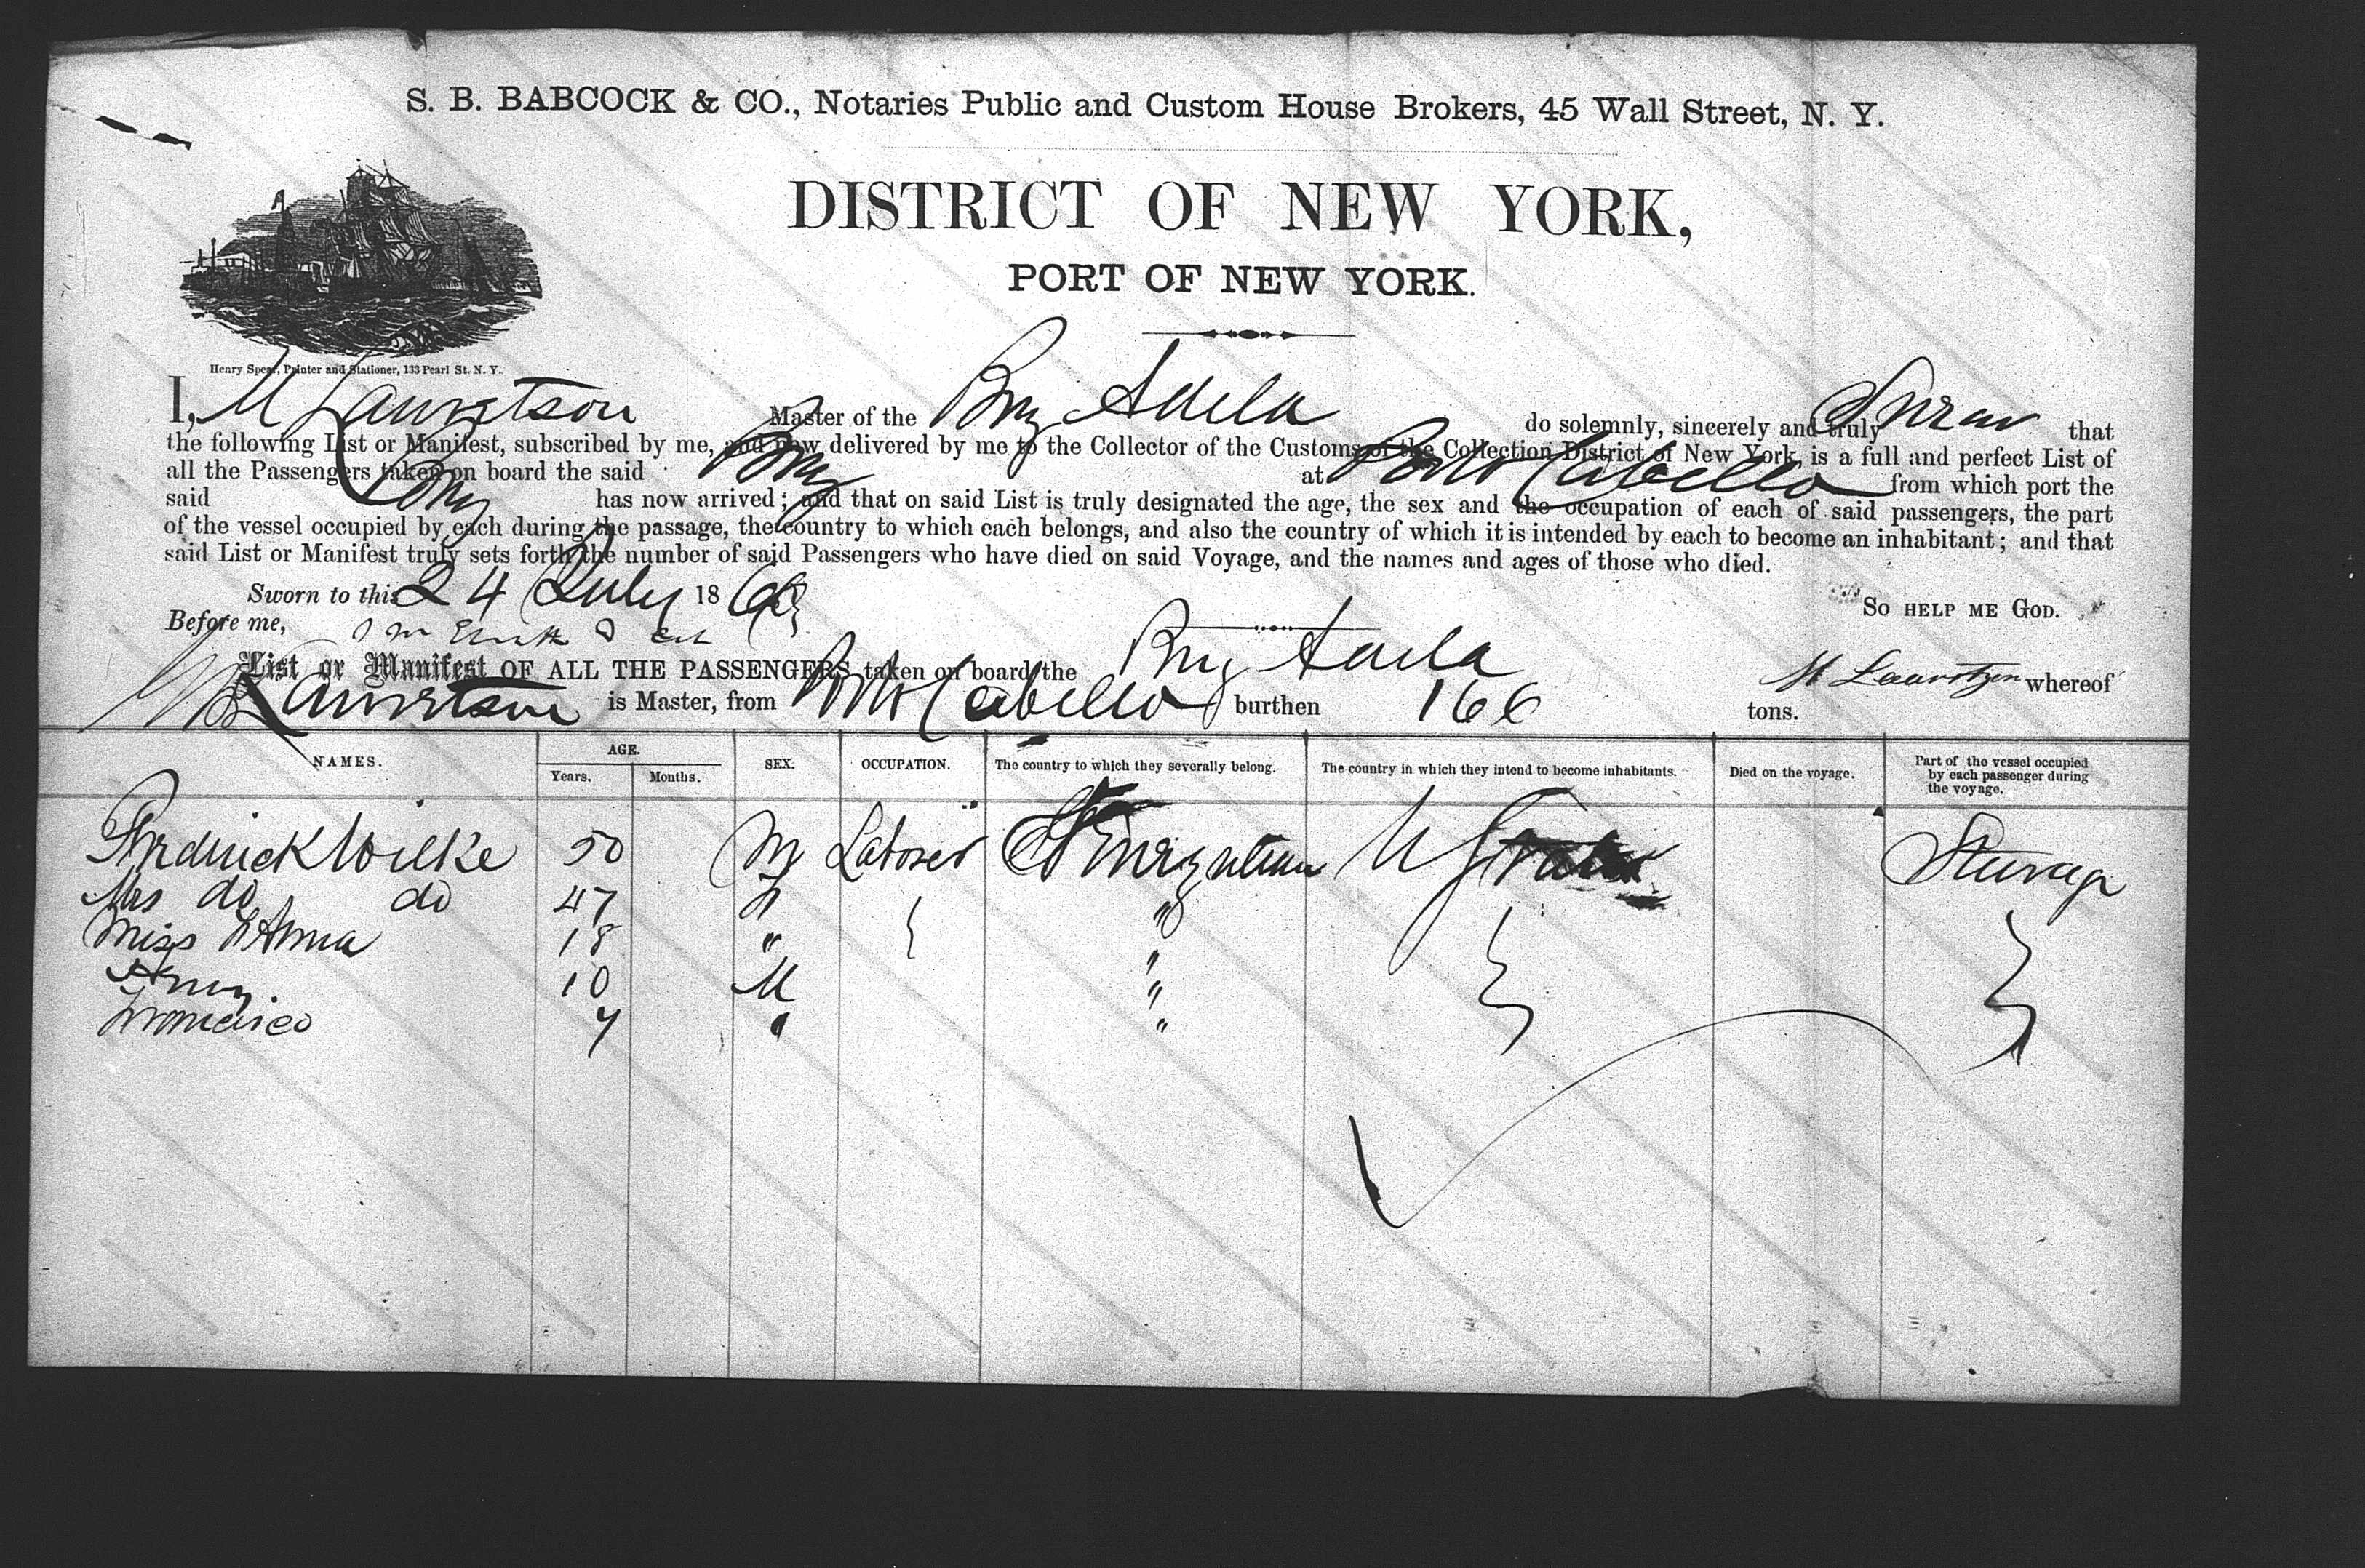 S. B. BABCOCK & CO., Notaries Public and Custom House Brokers, 45 Wall Street, N. Y.
DISTRICT OF NEW YORK,
PORT OF NEW YORK.
Henry Spear, Printer and Stationer, 133 Pearl St. N. Y.
I, M Lauretson Master of the Brig Adela do solemnly, sincerely and truly Swear that
the following List or Manifest, subscribed by me, and now delivered by me to the Collector of the Customs of the Collection District of New York, is a full and perfect List of
all the Passengers taken on board the said Brig at Porto Cabello from which port the
said Brig has now arrived; and that on said List is truly designated the age, the sex and the occupation of each of said passengers, the part
of the vessel occupied by each during the passage, the country to which each belongs, and also the country of which it is intended by each to become an inhabitant; and that
said List or Manifest truly sets forth the number of said Passengers who have died on said Voyage, and the names and ages of those who died.
Sworn to this 24 July 186 SO HELP ME GOD.
Before me,
List or Manifest OF ALL THE PASSENGERS taken on board the Brig Adela M Lauretzen whereof
Lauretson is Master, from Porto Cabello burthen 166 tons.
NAMES. AGE. SEX. OCCUPATION. The country to which they severally belong. The country in which they intend to become inhabitants. Died on the voyage. Part of the vessel occupied by each passenger during the voyage.
Years. Months.
Fredrick Wilke 50 M Laborer U States Steerage
Mrs do do 47 F "
Miss Anna 18 " "
Henry 10 M "
Francisco 7 " "